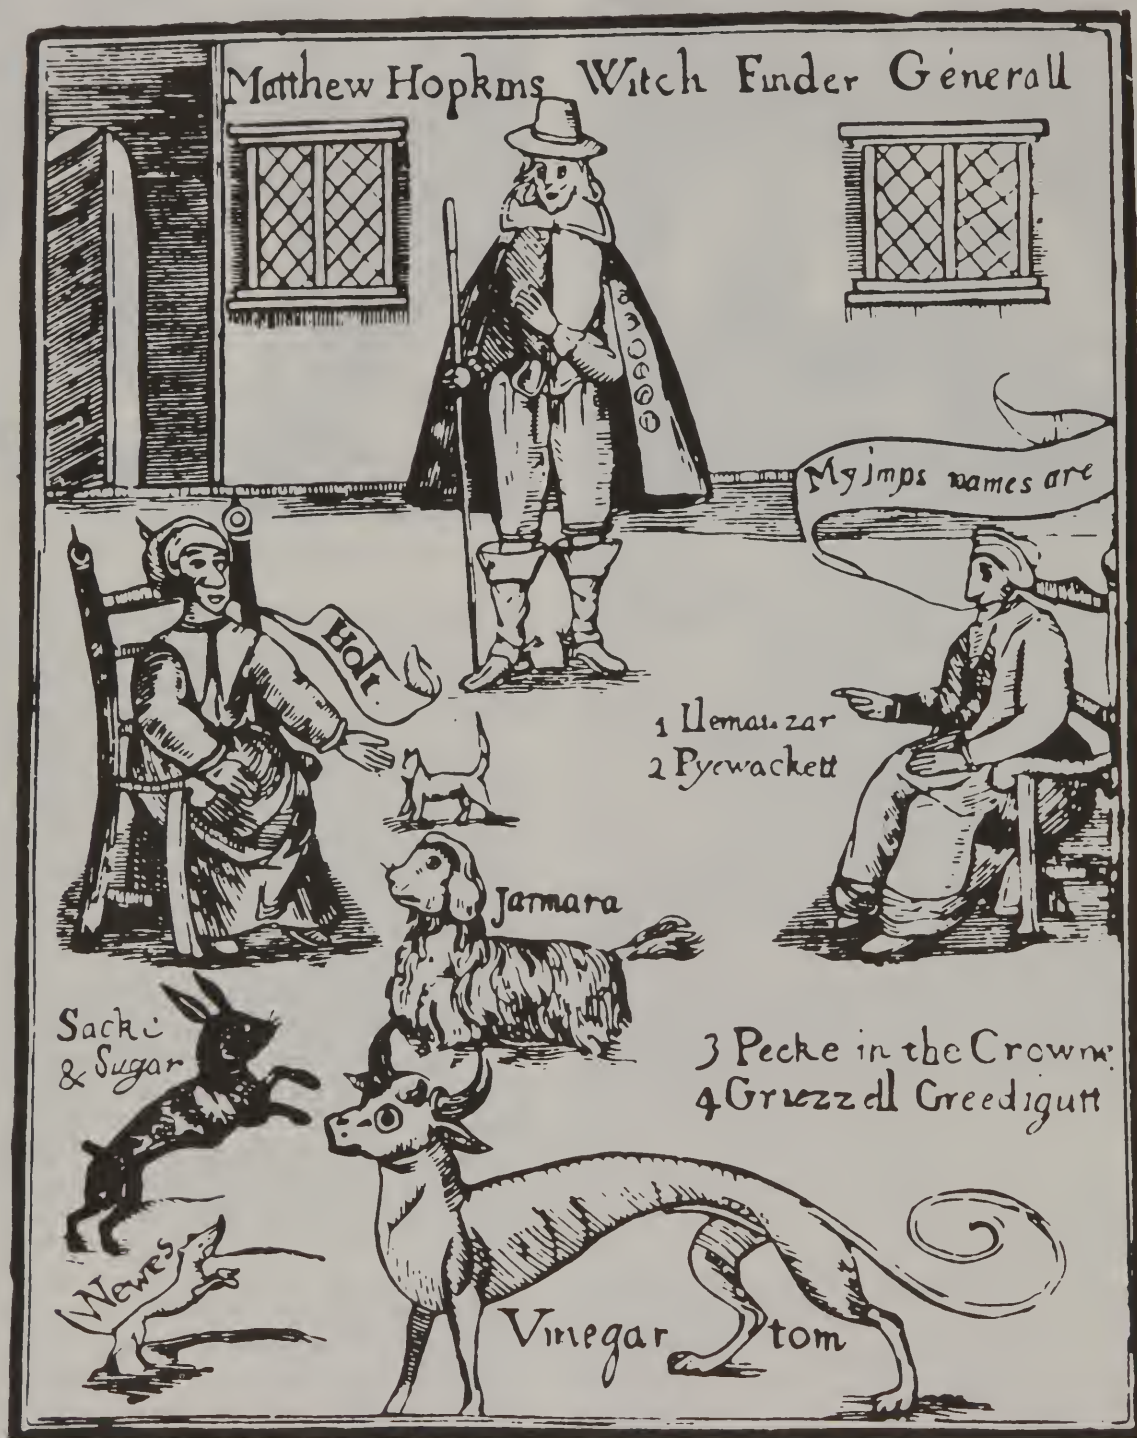 Matthew Hopkins Witch Finder Generall
My jmps names are
Holt
1 Ilemauzar
2 Pyewackett
Jarmara
Sacke
& Sugar
3 Pecke in the Crowne
4 Griezzell Greedigutt
Newes
Vinegar tom